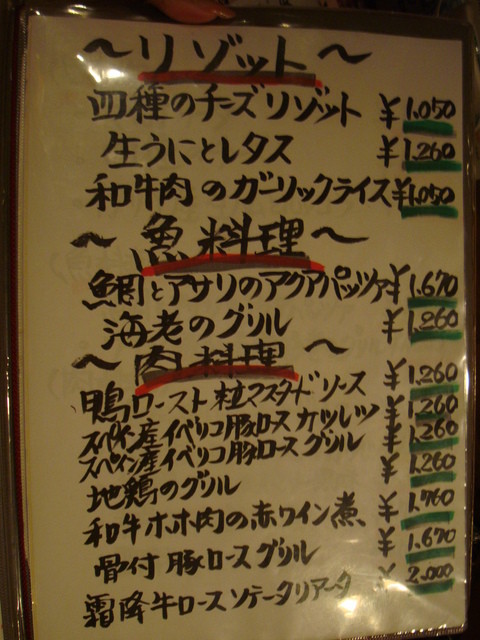 ～リゾット～
四種のチーズリゾット ¥1,050
生うにとレタス ¥1,260
和牛肉のガーリックライス ¥1,050
～魚料理～
鯛とアサリのアクアパッツァ ¥1,670
海老のグリル ¥1,260
～肉料理～
鴨ロースト粒マスタードソース ¥1,260
スペイン産イベリコ豚ロースカツレツ ¥1,260
スペイン産イベリコ豚ロースグリル ¥1,260
地鶏のグリル ¥1,260
和牛ホホ肉の赤ワイン煮 ¥1,760
骨付豚ロースグリル ¥1,670
霜降牛ロースソテータリアータ ¥2,000